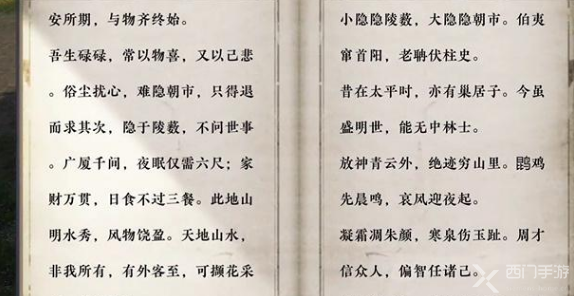 安所期，与物齐终始。
吾生碌碌，常以物喜，又以己悲
。俗尘扰心，难隐朝市，只得退
而求其次，隐于陵薮，不问世事
。广厦千间，夜眠仅需六尺；家
财万贯，日食不过三餐。此地山
明水秀，风物饶盈。天地山水，
非我所有，有外客至，可撷花采
小隐隐陵薮，大隐隐朝市。伯夷
窜首阳，老聃伏柱史。
昔在太平时，亦有巢居子。今虽
盛明世，能无中林士。
放神青云外，绝迹穷山里。鹍鸡
先晨鸣，哀风迎夜起。
凝霜凋朱颜，寒泉伤玉趾。周才
信众人，偏智任诸己。
西门手游